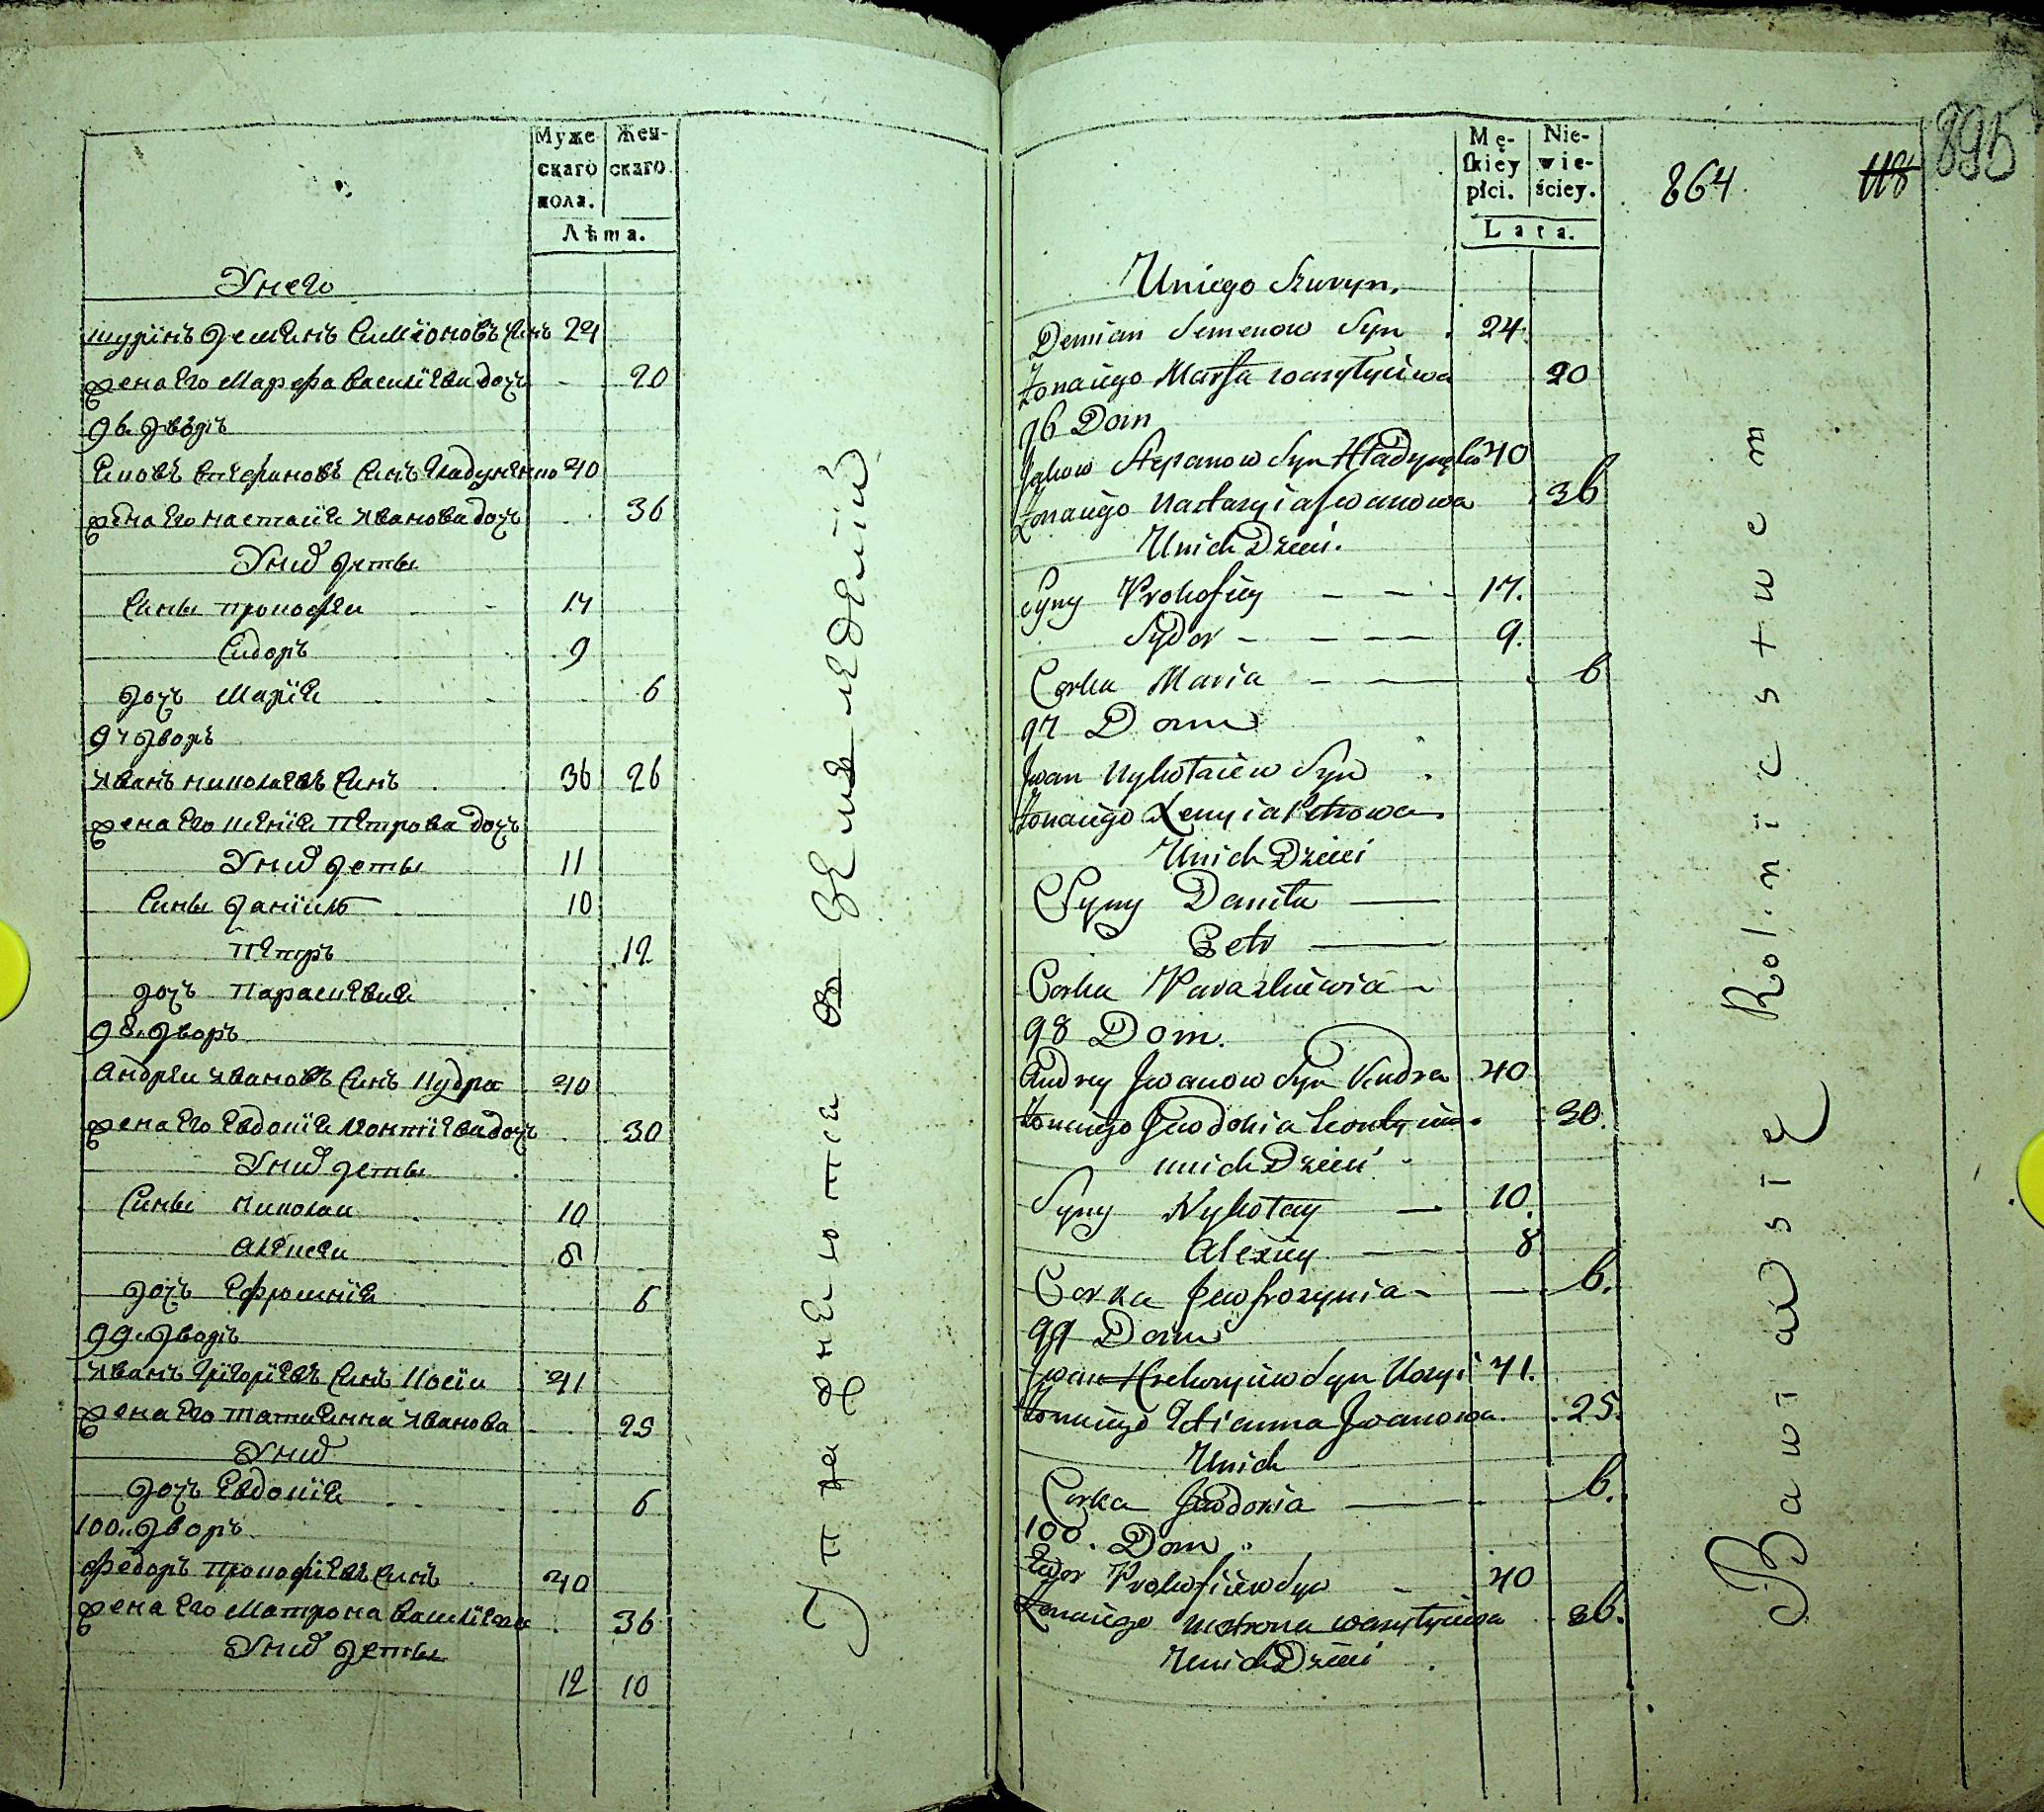 Муже-
скаго
пола.
Жен-
скаго
Лѣта.
Унего
шурінъ Демянъ Симіоновъ синъ 24
жена его Марфа Василіева дочъ 20
96 Дворъ
Яковъ Стефановъ синъ Гладученко 40
жена его Настасія Иванова дочъ 36
Унихъ дѣты
Сины Прокофеи 17
Сидоръ 9
дочъ Марія 6
97 Дворъ
Иванъ Николаевъ синъ 36 26
жена его Ксенія Петрова дочъ
Унихъ дѣты 11
Сины Даніилъ 10
Петръ 12
дочъ Параскевия
98. Дворъ
Андреи Ивановъ синъ Кудра 40
жена его Евдокія Леонтіева дочъ 30
Унихъ дѣты
Сины Николаи 10
Алексеи 8
дочъ Ефросинія 6
99. Дворъ
Иванъ Григоріевъ синъ Косіи 41
жена его Татиянна Иванова 25
Унихъ
дочъ Евдокія 6
100. Дворъ
Федоръ Прокофіевъ синъ 40
жена его Матрона Василіева 36
Унихъ дѣты
12 10
Упражнеются въ земледеліи
Mę-
skiey
płci.
Nie-
wie-
ściey.
Lata.
864 118 895
Uniego Szuryn.
Demian Semenow Syn 24.
Żonaiego Marfa Wasyłyiwa 20
96 Dom
Jakow Stepanow Syn Hładyneko 40
Żonaiego Nastasyia Iwanowa 36
Unich Dzieci.
Syny Prokofiey 17.
Sydor 9.
Corka Maria 6
97 Dom
Iwan Nykołaiew Syn
Żonaiego Xenyia Petrowa
Unich Dzieci
Syny Daniła
Petr
Corka Paraskiewia
98 Dom.
Andrey Iwanow Syn Kudra 40
Żonaiego Jewdokia Leontyiw. 30.
unich Dzieci
Syny Nykołay 10.
Alexiey 8
Corka Jewfrozynia 6.
99 Dom
Iwan Hrehoryiew Syn Kosyi 41.
Żonaiego Tetianna Iwanowa. 25.
Unich
Corka Jewdokia 6.
100. Dom
Fedor Prokofiiew Syn 40
Żonaiego Motrona Wasyłyiwa 36.
Unich Dzieci
Bawią się Rolnictwem